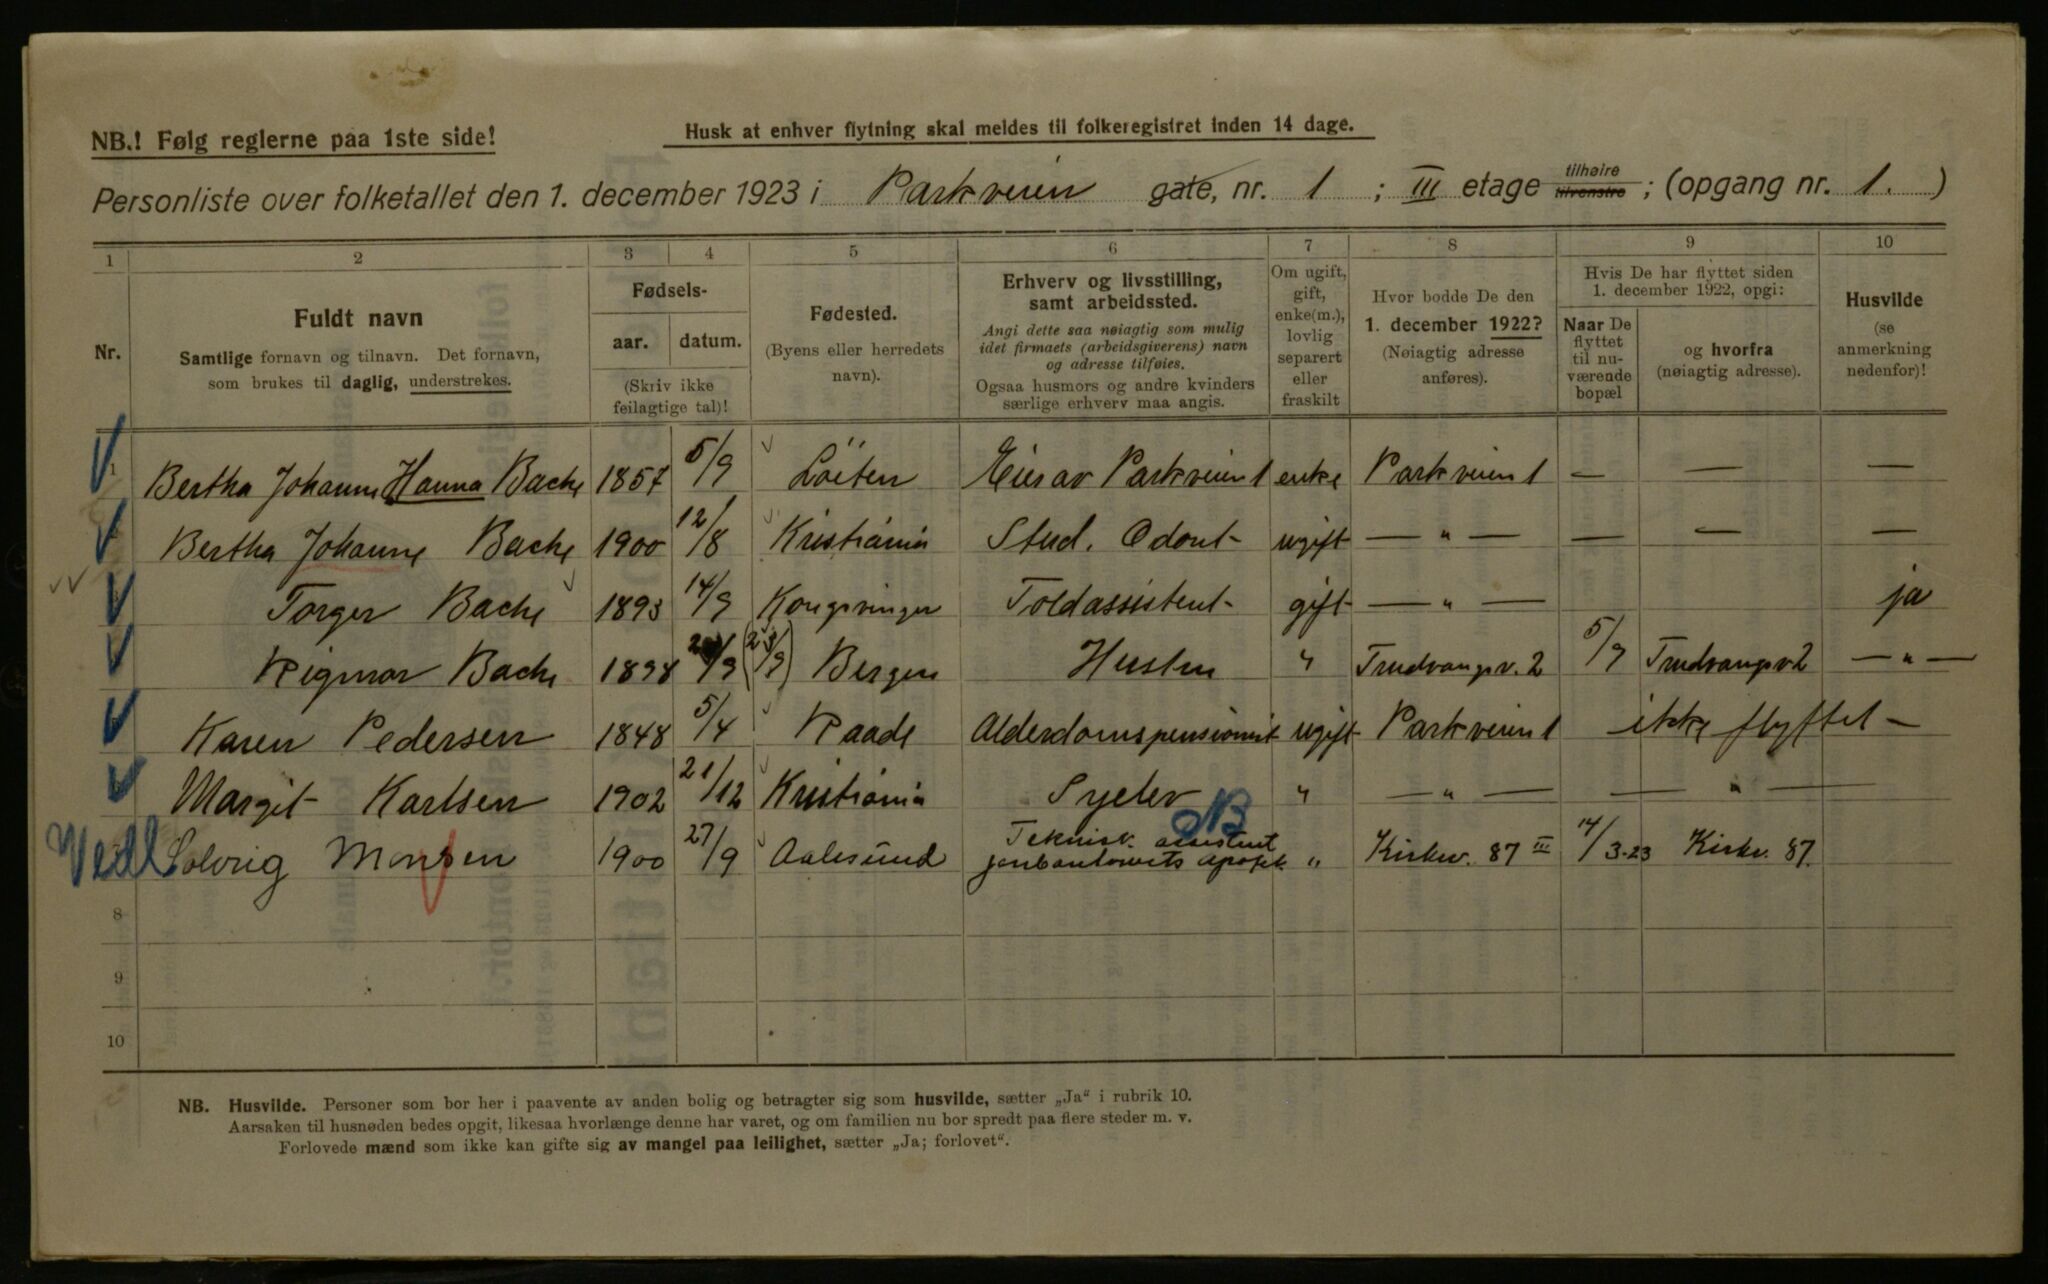 NB.! Følg reglerne paa 1ste side!
Husk at enhver flytning skal meldes til folkeregistret inden 14 dage.
Personliste over folketallet den 1. december 1923 i Parkveien gate, nr. 1 ; III etage tilhøire tilvenstre ; (opgang nr. 1. )
1 2 3 4 5 6 7 8 9 10
Nr.
Fuldt navn
Samtlige fornavn og tilnavn. Det fornavn,
som brukes til daglig, understrekes.
Fødsels-
aar. datum.
(Skriv ikke
feilagtige tal)!
Fødested.
(Byens eller herredets
navn).
Erhverv og livsstilling,
samt arbeidssted.
Angi dette saa nøiagtig som mulig
idet firmaets (arbeidsgiverens) navn
og adresse tilføies.
Ogsaa husmors og andre kvinders
særlige erhverv maa angis.
Om ugift,
gift,
enke(m.),
lovlig
separert
eller
fraskilt
Hvor bodde De den
1. december 1922?
(Nøiagtig adresse
anføres).
Hvis De har flyttet siden
1. december 1922, opgi:
Naar De
flyttet
til nu-
værende
bopæl
og hvorfra
(nøiagtig adresse).
Husvilde
(se
anmerkning
nedenfor)!
1 Bertha Johanne Hanna Bache 1857 5/9 Löiten Eier av Parkveien 1 enke Parkveien 1 — — —
Bertha Johanne Bache 1900 12/8 Kristiania Stud. Odont- ugift — " — — — —
Torger Bache 1893 14/9 Kongsvinger Toldassistent gift — " — ja
Rigmor Bache 1898 /9 (23/9) Bergen Husten " Trudvangsv. 2 5/9 Trudvangsv 2 — " —
Karen Pedersen 1848 5/4 Raade Alderdomspensionist ugift Parkveien 1 ikke flyttet —
Margit Karlsen 1902 21/12 Kristiania Syelev " — " — — " —
NB
Vedl Solveig Monsen 1900 27/9 Aalesund Teknisk assistent
Apotek " Kirkev. 87 III 14/3-23 Kirkv. 87.
8
9
10
NB. Husvilde. Personer som bor her i paavente av anden bolig og betragter sig som husvilde, sætter „Ja“ i rubrik 10.
Aarsaken til husnøden bedes opgit, likesaa hvorlænge denne har varet, og om familien nu bor spredt paa flere steder m. v.
Forlovede mænd som ikke kan gifte sig av mangel paa leilighet, sætter „Ja; forlovet“.